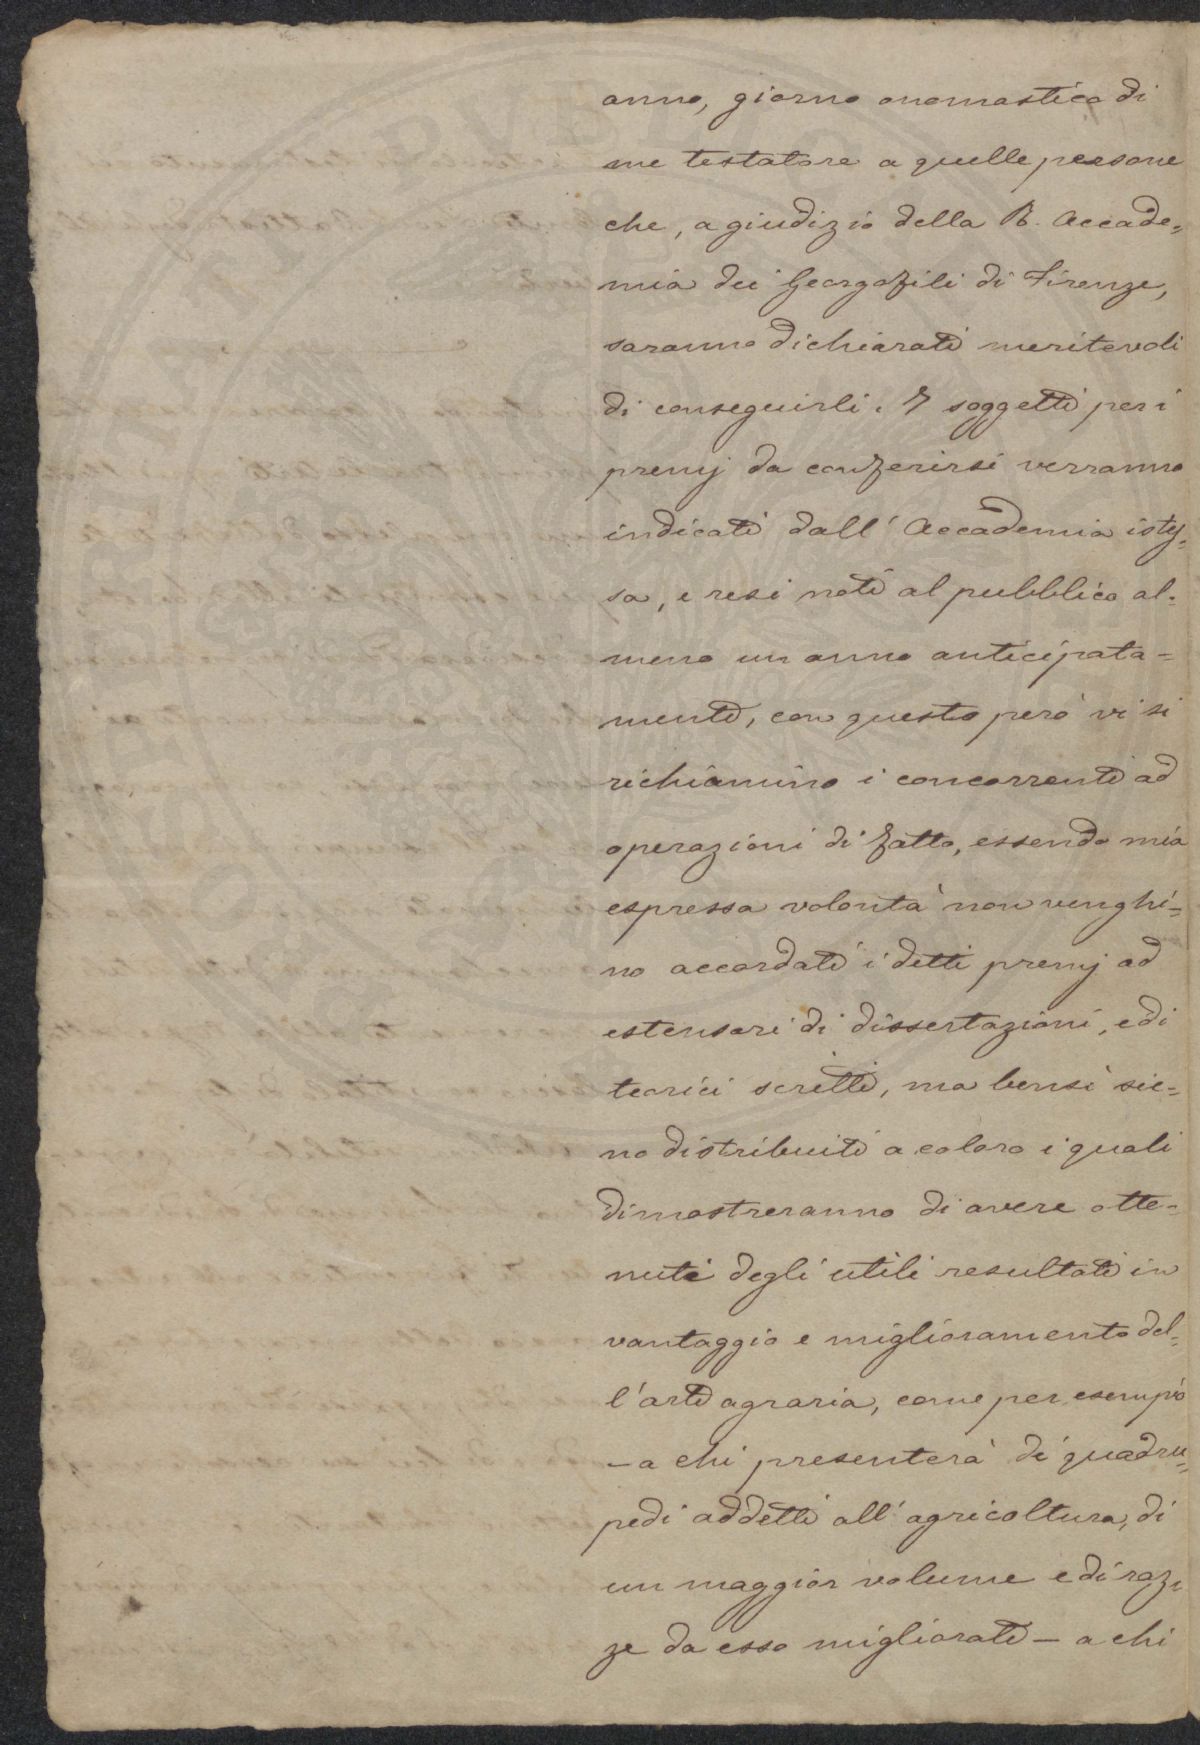 anno, giorno onomastico di
me testatore a quelle persone
che, a giudizio della R. Accade=
mia dei Georgofili di Firenze,
saranno dichiarati meritevoli
di conseguirli. I soggetti per i
premj da conferirsi verranno
indicati dall' Accademia istes=
sa, e resi noti al pubblico al=
meno un anno anticipata=
mente, con questo però vi si
richiamino i concorrenti ad
operazioni di fatto, essendo mia
espressa volontà non venghi=
no accordati i detti premj ad
estensori di dissertazioni, e di
teorici scritti, ma bensì sie=
no distribuiti a coloro i quali
dimostreranno di avere otte=
nuti degli utili resultati in
vantaggio e miglioramento del=
l'arte agraria, come per esempio
— a chi presenterà di quadru=
pedi addetti all' agricoltura, di
un maggior volume e di raz=
ze da esso migliorate — a chi